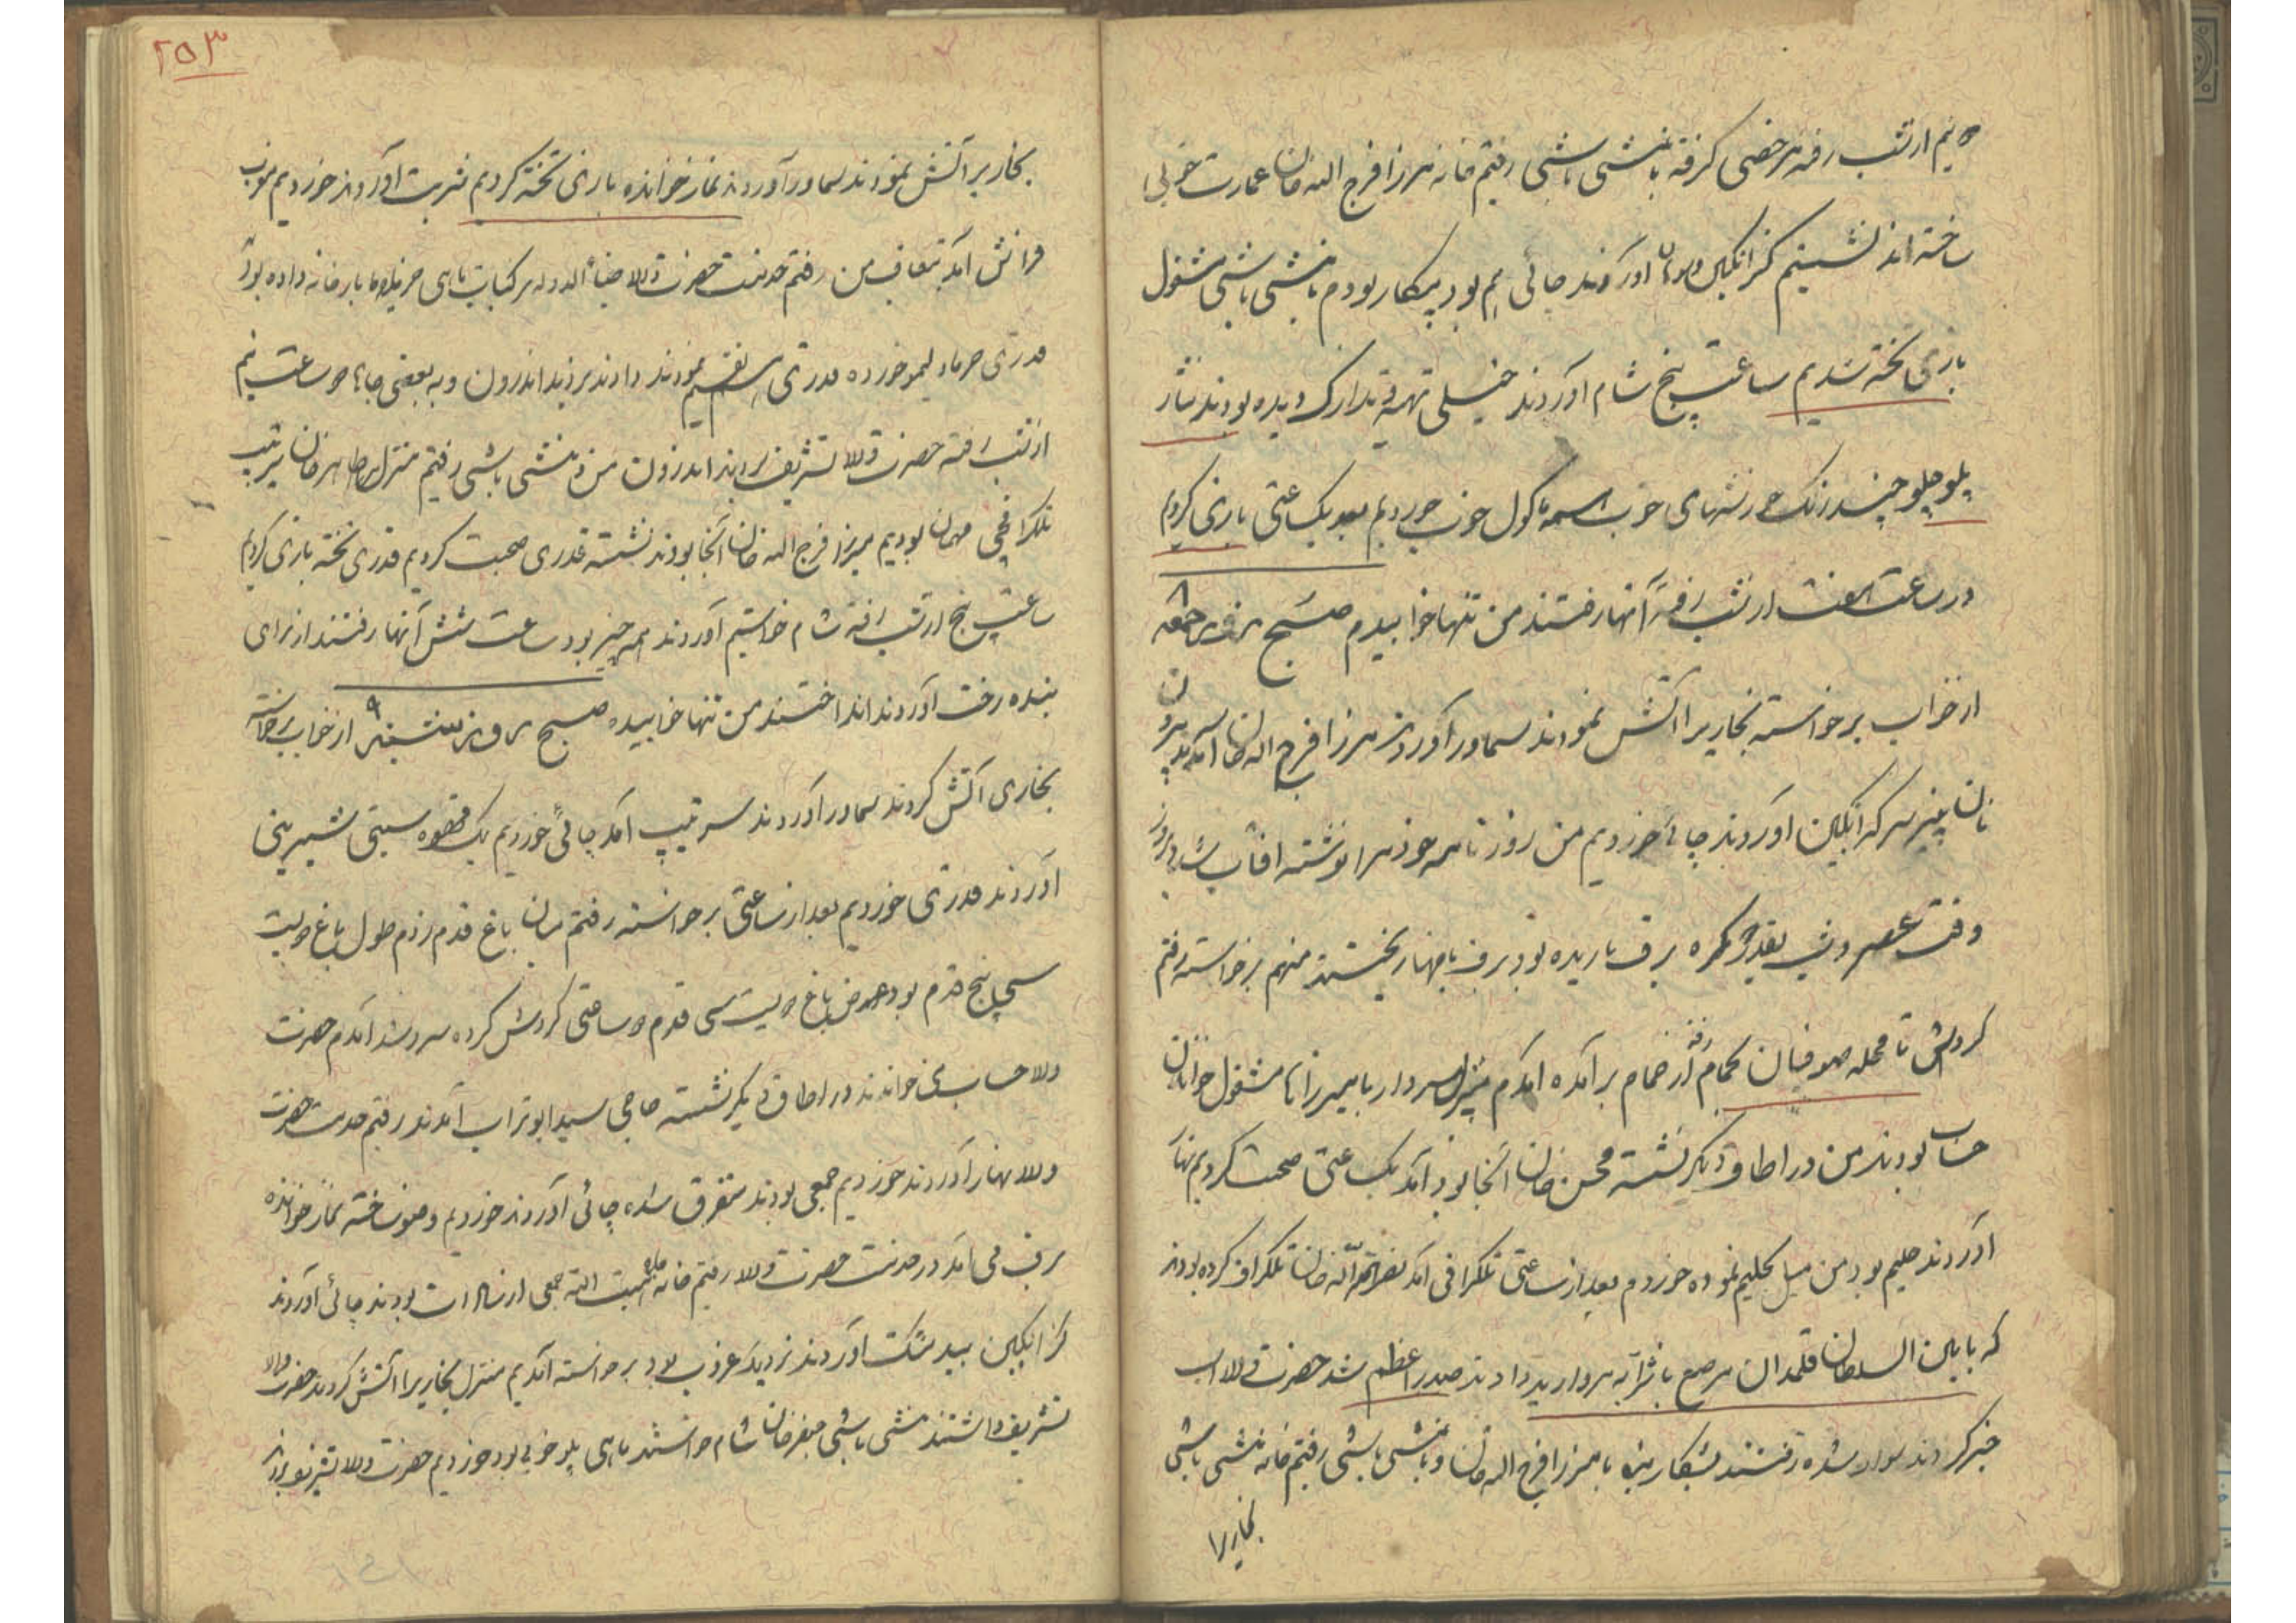 و نیم از شب رفته مرخصی گرفته با منشی باشی رفتم خانه میرزا فرج الله خان عمارت خوبی
ساخته اند نشستیم گزانگبین و اورند چائی هم بود بیکار بودم با منشی باشی مشغول
بازی تخته شدیم ساعت پنج شام آوردند خیلی تهیه و تدارک دیده بودند
پلو چلو چند رنگ خورشهای خوب همه ماکول خوب خوردیم بعد یکساعتی بازی کردیم
در ساعت هفت از شب رفته آنها رفتند من تنها خوابیدم صبح روز جمعه ۸
از خواب برخواسته بخاریرا آتش نمودند سماور آوردند میرزا فرج الله خان آمدند بیرون
نان پنیر سرکه انگبین آوردند چائی خوردیم من روزنامه خودمرا نوشته آفتاب شد دیروز
وقت عصر و شب بقدر گره برف باریده بود برف بامهارا ریختند منهم برخواسته رفتم
گردش تا محله صوفیان حمام رفته از حمام برآمده آمدم منزل سردار با میرزاها مشغول خواندن
حساب بودند من در اطاق دیگر نشسته محسن خان آنجا بود آمد یکساعتی صحبت کردیم نهار
آوردند حلیم بود من میل بحلیم نموده خوردم بعد از ساعتی تلگرافی آمد نصرالله خان تلگراف کرده بودند
که بامین السلطان قلمدان مرصع با شرابه مروارید دادند صدر اعظم شد حضرت والا اسب
خبر کردند سوار شده رفتند بشکار بنده با میرزا فرج الله خان و با منشی باشی رفتم خانه منشی باشی
بخاریرا
۲۵۳
بخاریرا آتش نمودند سماور آوردند نماز خوانده بازی تخته کردیم شربت آوردند خوردیم غروب
فراش آمد بتعاقب من رفتم خدمت حضرت والا ضیاء الدوله مرکبات ماهی خرما بارخانه داده بود
قدری خرما و لیمو خورده قدری تقسیم نمودند دادند بردند اندرون و به بعضی جاها دو ساعت نیم
از شب رفته حضرت والا تشریف بردند اندرون من و منشی باشی رفتم منزل طاهر خان سرتیب
تلگرافچی مهمان بودیم میرزا فرج الله خان آنجا بودند نشسته قدری صحبت کردیم قدری تخته بازی کردیم
ساعت پنج از شب رفته شام خواستیم آوردند همه چیز بود ساعت شش آنها رفتند از برای
بنده رخت آوردند انداختند من تنها خوابیده صبح روز شنبه ۹ از خواب برخاسته
بخاری آتش کردند سماور آوردند سرتیپ آمد چائی خوردیم یک قهوه سینی شیرینی
آوردند قدری خوردیم بعد از ساعتی برخواسته رفتم میان باغ قدم زدم طول باغ دویست
سی پنج قدم بود عرض باغ دویست سی قدم دو ساعتی گردش کرده آمدم حضرت
والا حساب می خواندند در اطاق دیگر نشسته حاجی سید ابوتراب آمدند رفتم خدمت حضرت
والا نهار آوردند خوردیم جمعی بودند متفرق شده چائی آوردند خوردیم وضو ساخته نماز خوانده
برف می آمد در خدمت حضرت والا رفتیم خانه جمعی از بودند چائی آوردند
گزانگبین بیدمشک آوردند نزدیک غروب بود برخواسته آمدیم منزل بخاریرا آتش کردند حضرت والا
تشریف داشتند منشی باشی جعفرخان شام خواستند ماهی پلو خوبی بود خوردیم حضرت والا تشریف بردند